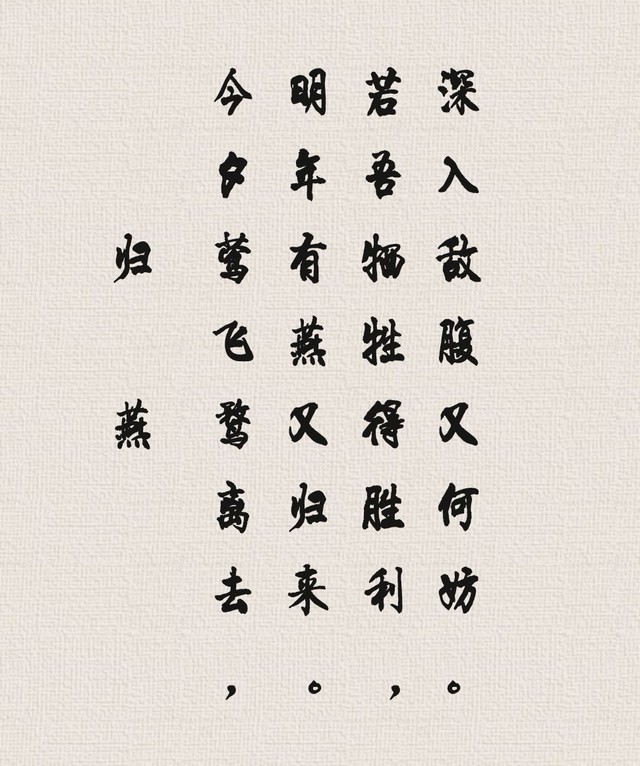 归燕
今夕莺飞鹜离去，
明年有燕又归来。
若吾牺牲得胜利，
深入敌腹又何妨。